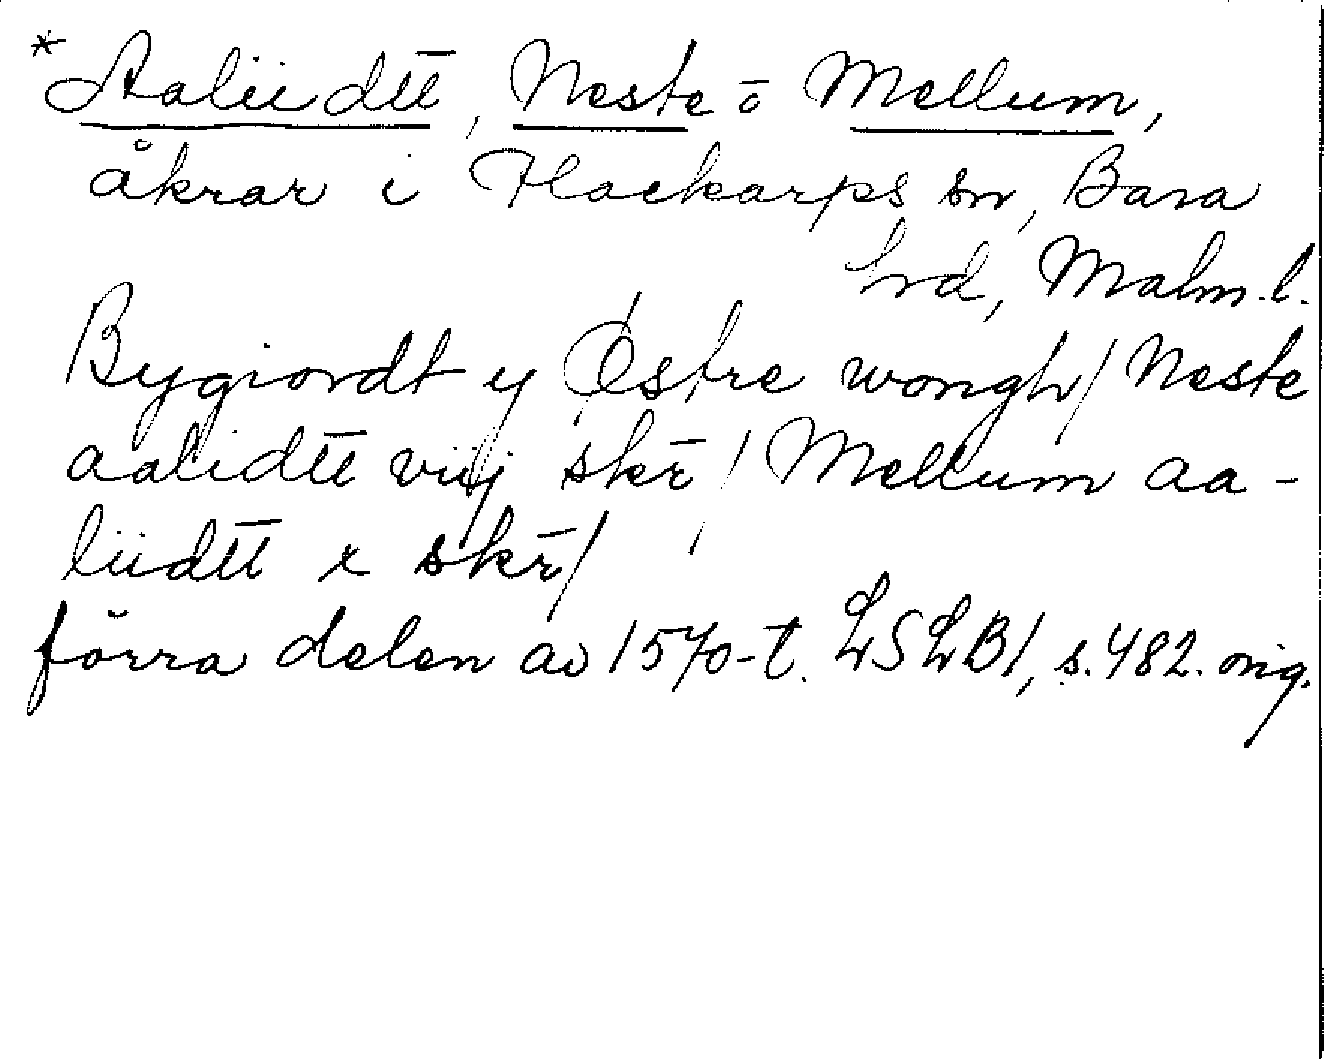 * Aaliidtt, Neste o Mellum,
åkrar i Flackarps sn, Bara
hrd, Malm. l.
Bygiordt y Østre wongh/ Neste
aalidtt viij skr̄ / Mellum aa-
liidtt x skr̄/
förra delen av 1570-t. LSLB1, s. 482. orig.